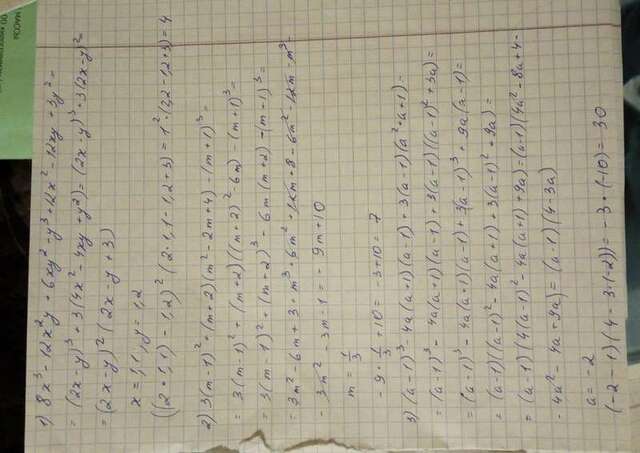 1) 8x³-12x²y+6xy²-y³+12x²-12xy+3y²=
=(2x-y)³+3(4x²-4xy+y²)=(2x-y)³+3(2x-y)²=
=(2x-y)²(2x-y+3)
x=1,1, y=1,2
((2·1,1)-1,2)²(2·1,1-1,2+3)=1²·(2,2-1,2+3)=4
2) 3(m-1)²+(m+2)(m²-2m+4)-(m+1)³=
=3(m-1)²+(m+2)((m+2)²-6m)-(m+1)³=
=3(m-1)²+(m+2)³-6m(m+2)-(m+1)³=
=3m²-6m+3+m³+6m²+12m+8-6m²-12m-m³-
-3m²-3m-1=-9m+10
m=1/3
-9·1/3+10=-3+10=-7
3) (a-1)³-4a(a+1)(a-1)+3(a-1)(a²+a+1)-
=(a-1)³-4a(a+1)(a-1)+3(a-1)((a-1)²+3a)=
=(a-1)³-4a(a+1)(a-1)+3(a-1)³+9a(a-1)=
=(a-1)((a-1)²-4a(a+1)+3(a-1)²+9a)=
=(a-1)(4(a-1)²-4a(a+1)+9a)=(a-1)(4a²-8a+4-
-4a²-4a+9a)=(a-1)(4-3a)
a=-2
(-2-1)(4-3·(-2))=-3·(-10)=30